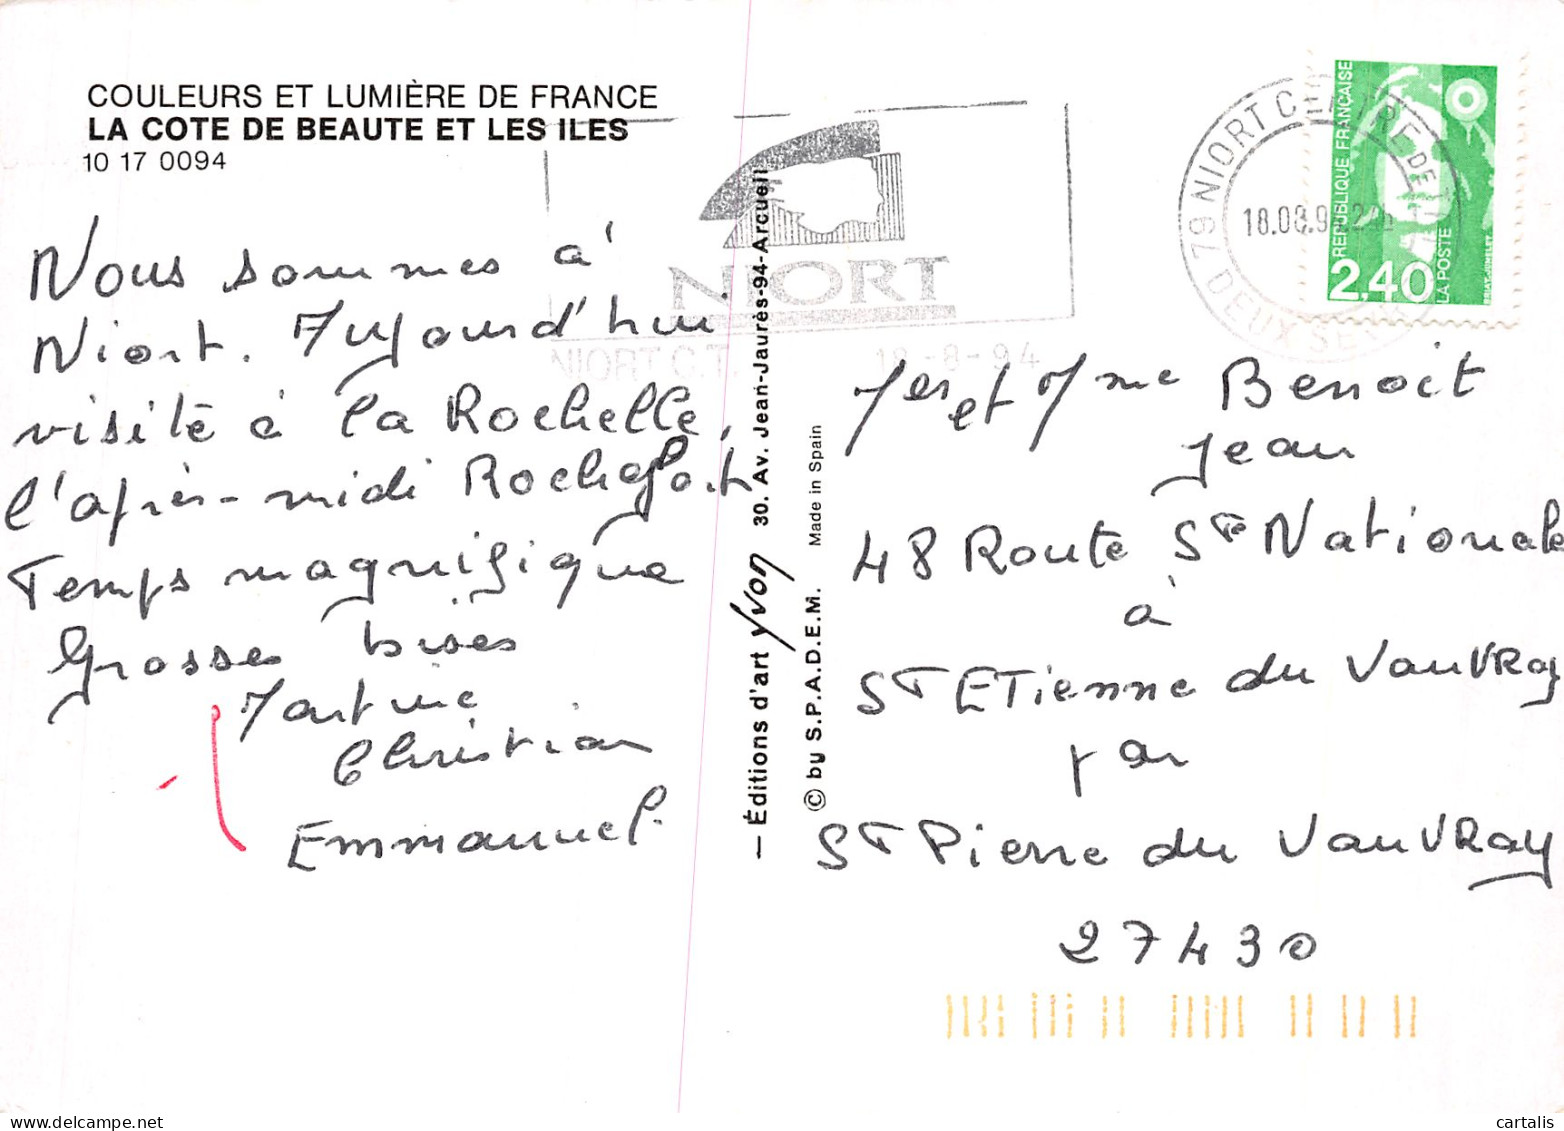 COULEURS ET LUMIÈRE DE FRANCE
LA COTE DE BEAUTE ET LES ILES
10 17 0094
Nous sommes à
Niort. Aujourd'hui
visite à la Rochelle,
l'après-midi Rochefort
Temps magnifique
Grosses bises
Martine
Christian
Emmanuel.
NIORT
NIORT C.T.
18-8-94
— Éditions d'art Yvon 30. Av. Jean-Jaurès-94-Arcueil
© by S.P.A.D.E.M. Made in Spain
79 NIORT CENTRE DE
DEUX SEV
18.08.9
RÉPUBLIQUE FRANÇAISE
2,40
LA POSTE
Mer et Mme Benoit
Jean
48 Route St Nationale
à
St ETienne du VauVRay
par
St Pierre du VauVRay
27430
cartalis